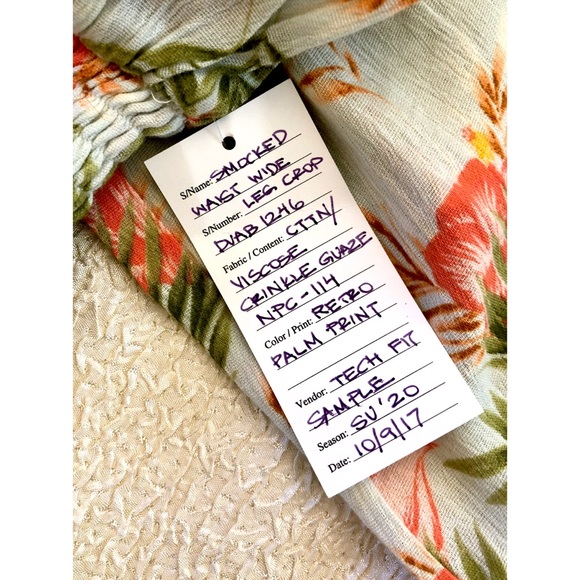 S/Name: SMOCKED
WAIST WIDE
S/Number: LEG CROP
DJAB1246
Fabric / Content: CTTN/
VISCOSE
CRINKLE GUAZE
NPC-114
Color / Print: RETRO
PALM PRINT
Vendor: TECH FIT
SAMPLE
Season: SU'20
Date: 10/9/17